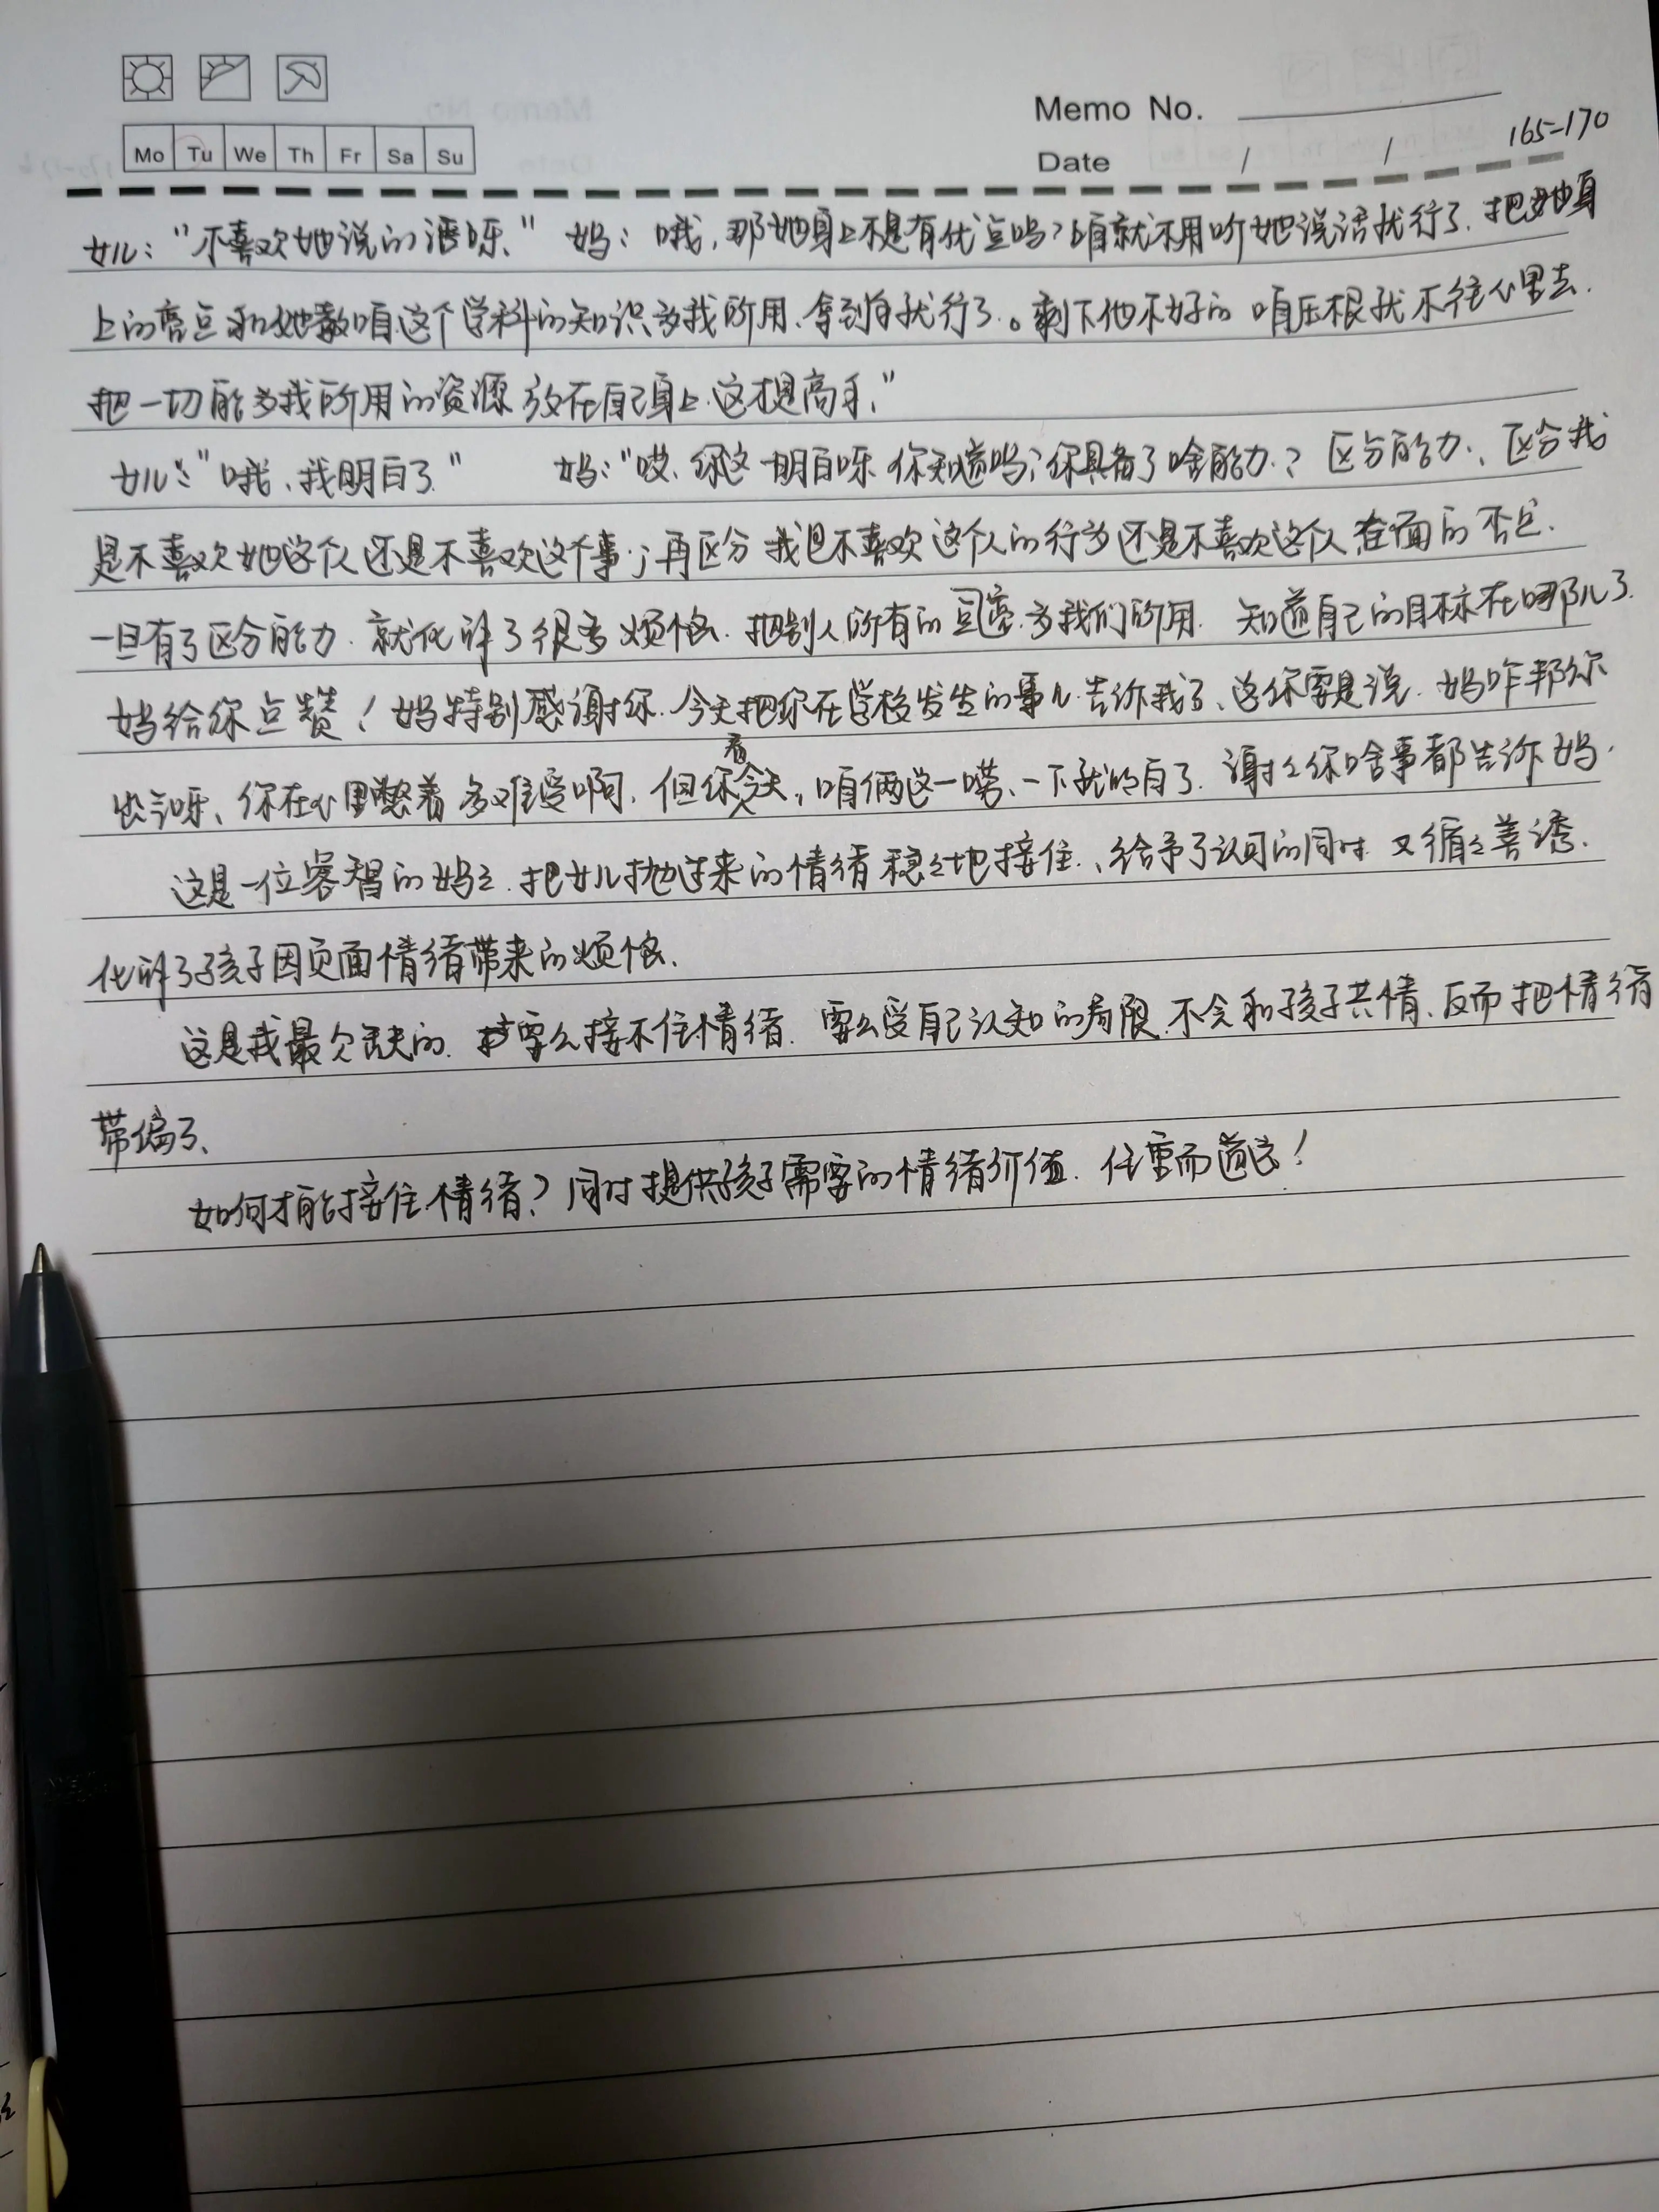 Memo No.
Mo Tu We Th Fr Sa Su
Date / /
165-170
女儿：“不喜欢她说的话呀.” 妈：哦，那她身上不是有优点吗？咱就不用听她说话就行了.把她身
上的亮点和她教咱这个学科的知识为我所用、拿到自就行了。剩下他不好的 咱压根就不往心里去.
把一切能为我所用的资源放在自己身上.这才是高手.”
女儿：“哦、我明白了” 妈：“哎、你这一明白呀 你知道吗？你具备了啥能力.？区分能力、区分我
是不喜欢她这个人还是不喜欢这个事；再区分 我是不喜欢这个人的行为还是不喜欢这个人 在面的
一旦有了区分能力.就化解了很多烦恼.把别人所有的 为我们所用. 知道自己的目标在哪儿了.
妈给你点赞！妈特别感谢你.今天把你在学校发生的事儿告诉我了、这你要是说.妈咋帮你
出气呀、你在心里憋着多难受啊.但你看今天，咱俩这一唠、一下就明白了.谢谢你啥事都告诉妈.
这是一位睿智的妈妈.把女儿抛过来的情绪稳稳地接住.、给予了认可的同时.又循循善诱.
化解了孩子因页面情绪带来的烦恼.
这是我最欠缺的. 要么接不住情绪. 要么受自己认知的局限.不会和孩子共情、反而把情绪
带偏了、
如何才能接住情绪？同时提供孩子需要的情绪价值. 任重而道远！